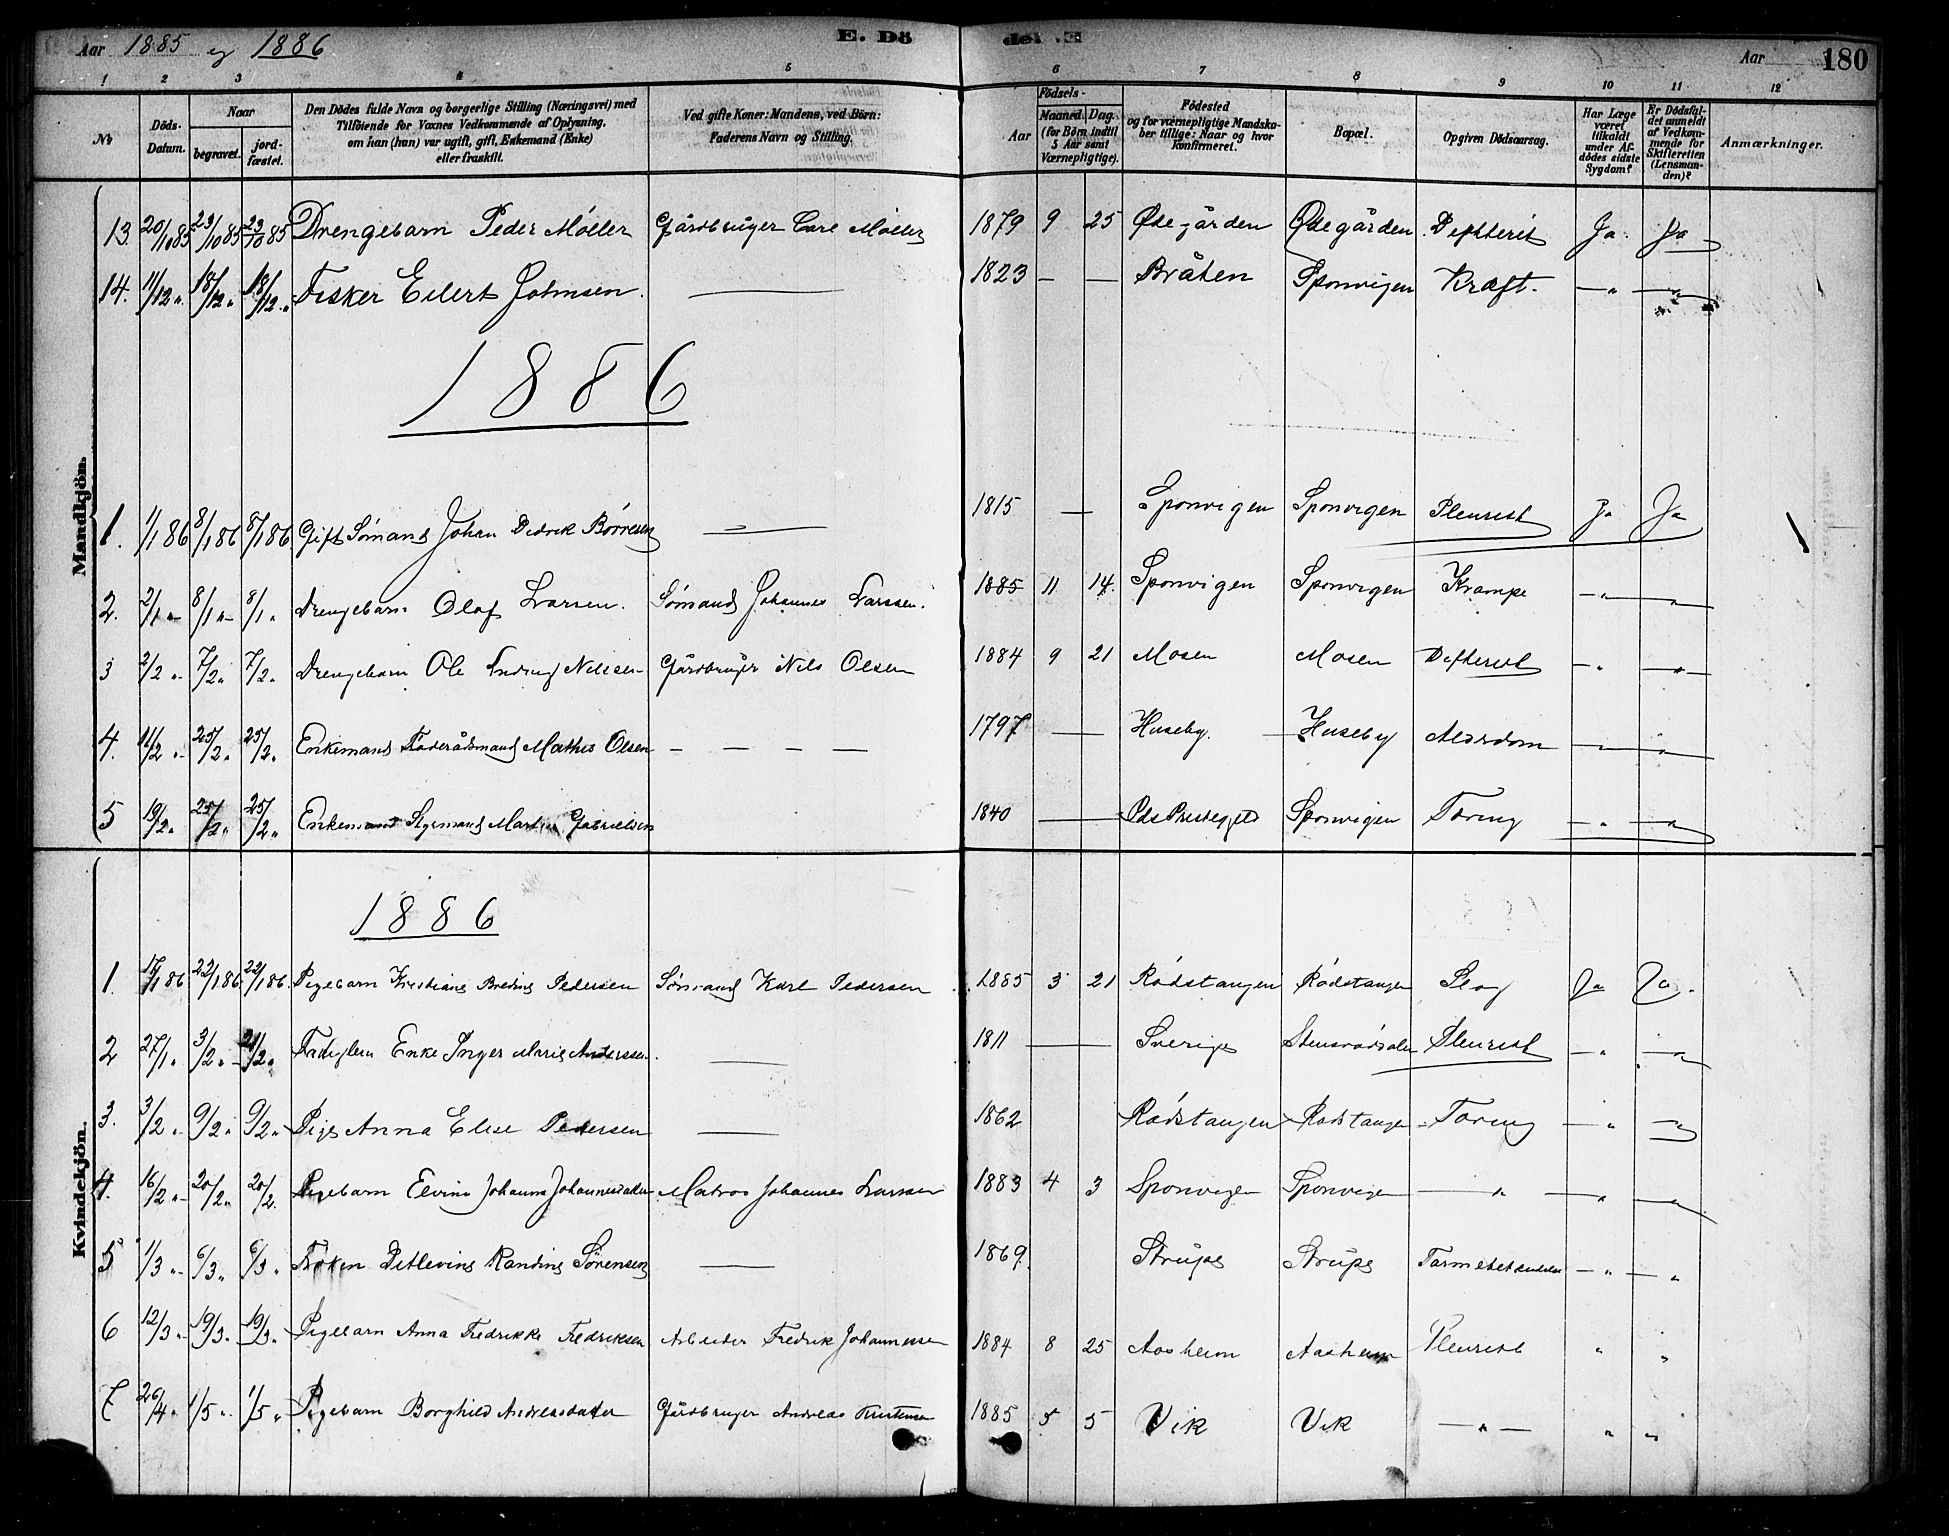 Aar 1885 og 1886 E. Dö de: .E Aar 180
1 2 3 4 5 6 7 8 9 10 11 12
No Döds-Datum. Naar begravet. jord-fæstet. Den Dödes fulde Navn og borgerlige Stilling (Næringsvei) med Tilföiende for Voxnes Vedkommende af Oplysning, om han (hun) var ugift, gift, Enkemand (Enke) eller fraskilt. Ved gifte Koner: Mandens, ved Börn: Faderens Navn og Stilling. Födsels- Aar Maaned. Dag. (for Börn indtil 5 Aar samt Værnepligtige). Födested og for værnepligtige Mandskaber tillige: Naar og hvor konfirmeret. Bopæl. Opgiven Dödsaarsag. Har Læge været tilkaldt under Afdödes sidste Sygdom? Er Dödsfaldet anmeldt af Vedkommende for Skifteretten (Lensmanden)? Anmærkninger.
Mandkjön.
13. 20/10 85 23/10 85 23/10 85 Drengebarn Peder Móller Gårdbruger Carl Móller 1879 9 25 Ødegården Ødegården Defterit Ja Ja
14. 11/12 " 18/12 " 18/12 " Fisker Eilert Johnsen. — 1823 — — Bråten Sponvigen Kræft. — " — " —
1886
1. 1/1 86 8/1 86 8/1 86 Gift Sómand Johan Didrik Bórresen — 1815 — Sponvigen Sponvigen Pleurist Ja Ja
2. 2/1 " 8/1 " 8/1 " Drengebarn Olaf Larsen. Sómand Johannes Larssen. 1885 11 14. Sponvigen Sponvigen Krampe — " — " —
3 2/2 " 7/2 " 7/2 " Drengebarn Ole Nilssen Gårdbruger Nils Olsen 1884 9 21 Mosen Mosen Defterist — " — " —
4. 11/2 " 25/2 " 25/2 " Enkemand Foderådsmand Mathis Olsen — — — — 1797 — Huseby. Huseby Alderdom — " — " —
5 19/2 " 25/2 " 25/2 " Enkemand Styrmand Martin Gabrielsen 1840 — Ids Prestegjeld Sponvigen Tæring — " — " —
Kvindekjön.
1886
1. 17/1 86 22/1 86 22/1 86. Pigebarn Kristiane Bredine Pedersen Sómand Karl Pedersen 1885 3 21 Ródstangen Ródstangen Slag Ja Ja.
2 27/1 " 3/2 " 2/2 " Fattiglem Enke Inger Marie Anderssen. — 1811 — Sverige Pleurist — " — " —
3. 3/2 " 9/2 " 9/2 " Pige Anna Elise Pedersen — 1862 Ródstangen Ródstangen Tæring — " — " —
4. 16/2 " 20/2 " 20/2. Pigebarn Elvine Johanne Johannesdatter Matros Johannes Larssen 1883 4 3 Sponvigen Sponvigen — " — " — " —
5 1/3 " 6/3 " 6/3 " Fróken Ditlevine Randine Sórensen — 1869. Strupe Strupe — " — "
6 12/3 " 19/3 " 19/3 " Pigebarn Anna Fredrikke Fredriksen Arbeider Fredrik Johannessen 1884 8 25 Aasheim Aasheim Pleurist " "
7 26/4 " 1/5 " 1/5 " Pigebarn Borghild Andreasdatter Gårdbruger Andreas Kristensen 1885 5 5 Vik Vik — " — " "